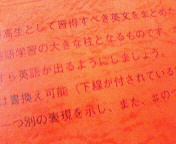 高生として習得すべき英文をまとめた
語学習の大きな柱となるものです。
すら英語が出るようにしましょう。
は書換え可能（下線が付されている
一つ別の表現を示し、また、